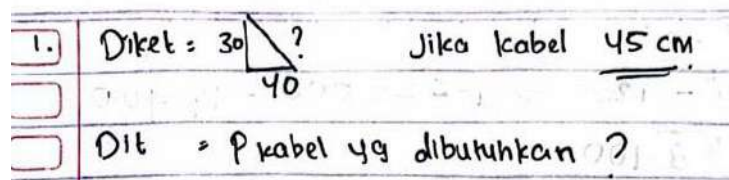 1. Diket : 30 ? Jika kabel 45 cm
40
Dit = P kabel yg dibutuhkan ?